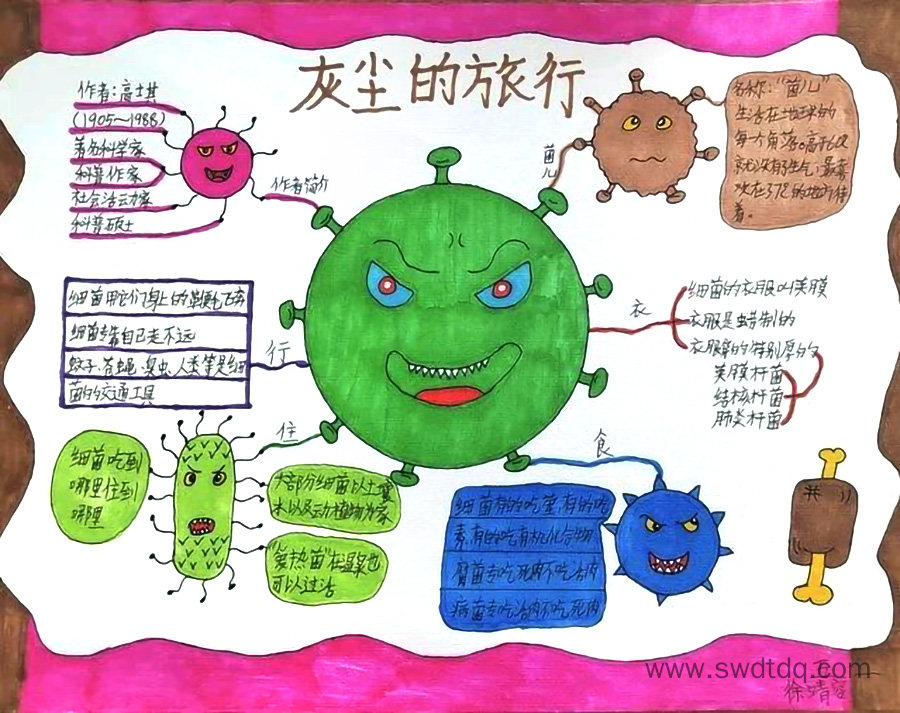 灰尘的旅行
作者:高士其
(1905~1988)
著名科学家
科普作家
社会活动家
科普硕士
作者简介
菌儿
名称:"菌儿"
生活在地球的
每个角落。高于
就没有生气;最喜
欢在37℃的地方待
着。
细菌用它们身上的鞭毛
细菌专靠自己走不远
蚊子、苍蝇、臭虫、人类等是细
菌的交通工具
行
衣
细菌的衣服叫荚膜
衣服是蜡制的
衣服穿的特别厚的
荚膜杆菌
结核杆菌
肺炎杆菌
住
细菌吃到
哪里住到
哪里
大部分细菌以土壤
水以及动植物为家
"爱热菌"在温泉也
可以过活
食
细菌有的吃荤,有的吃
素,有的吃有机化合物
腐菌专吃死肉不吃活肉
病菌专吃活肉不吃死肉
www.swdtdq.com